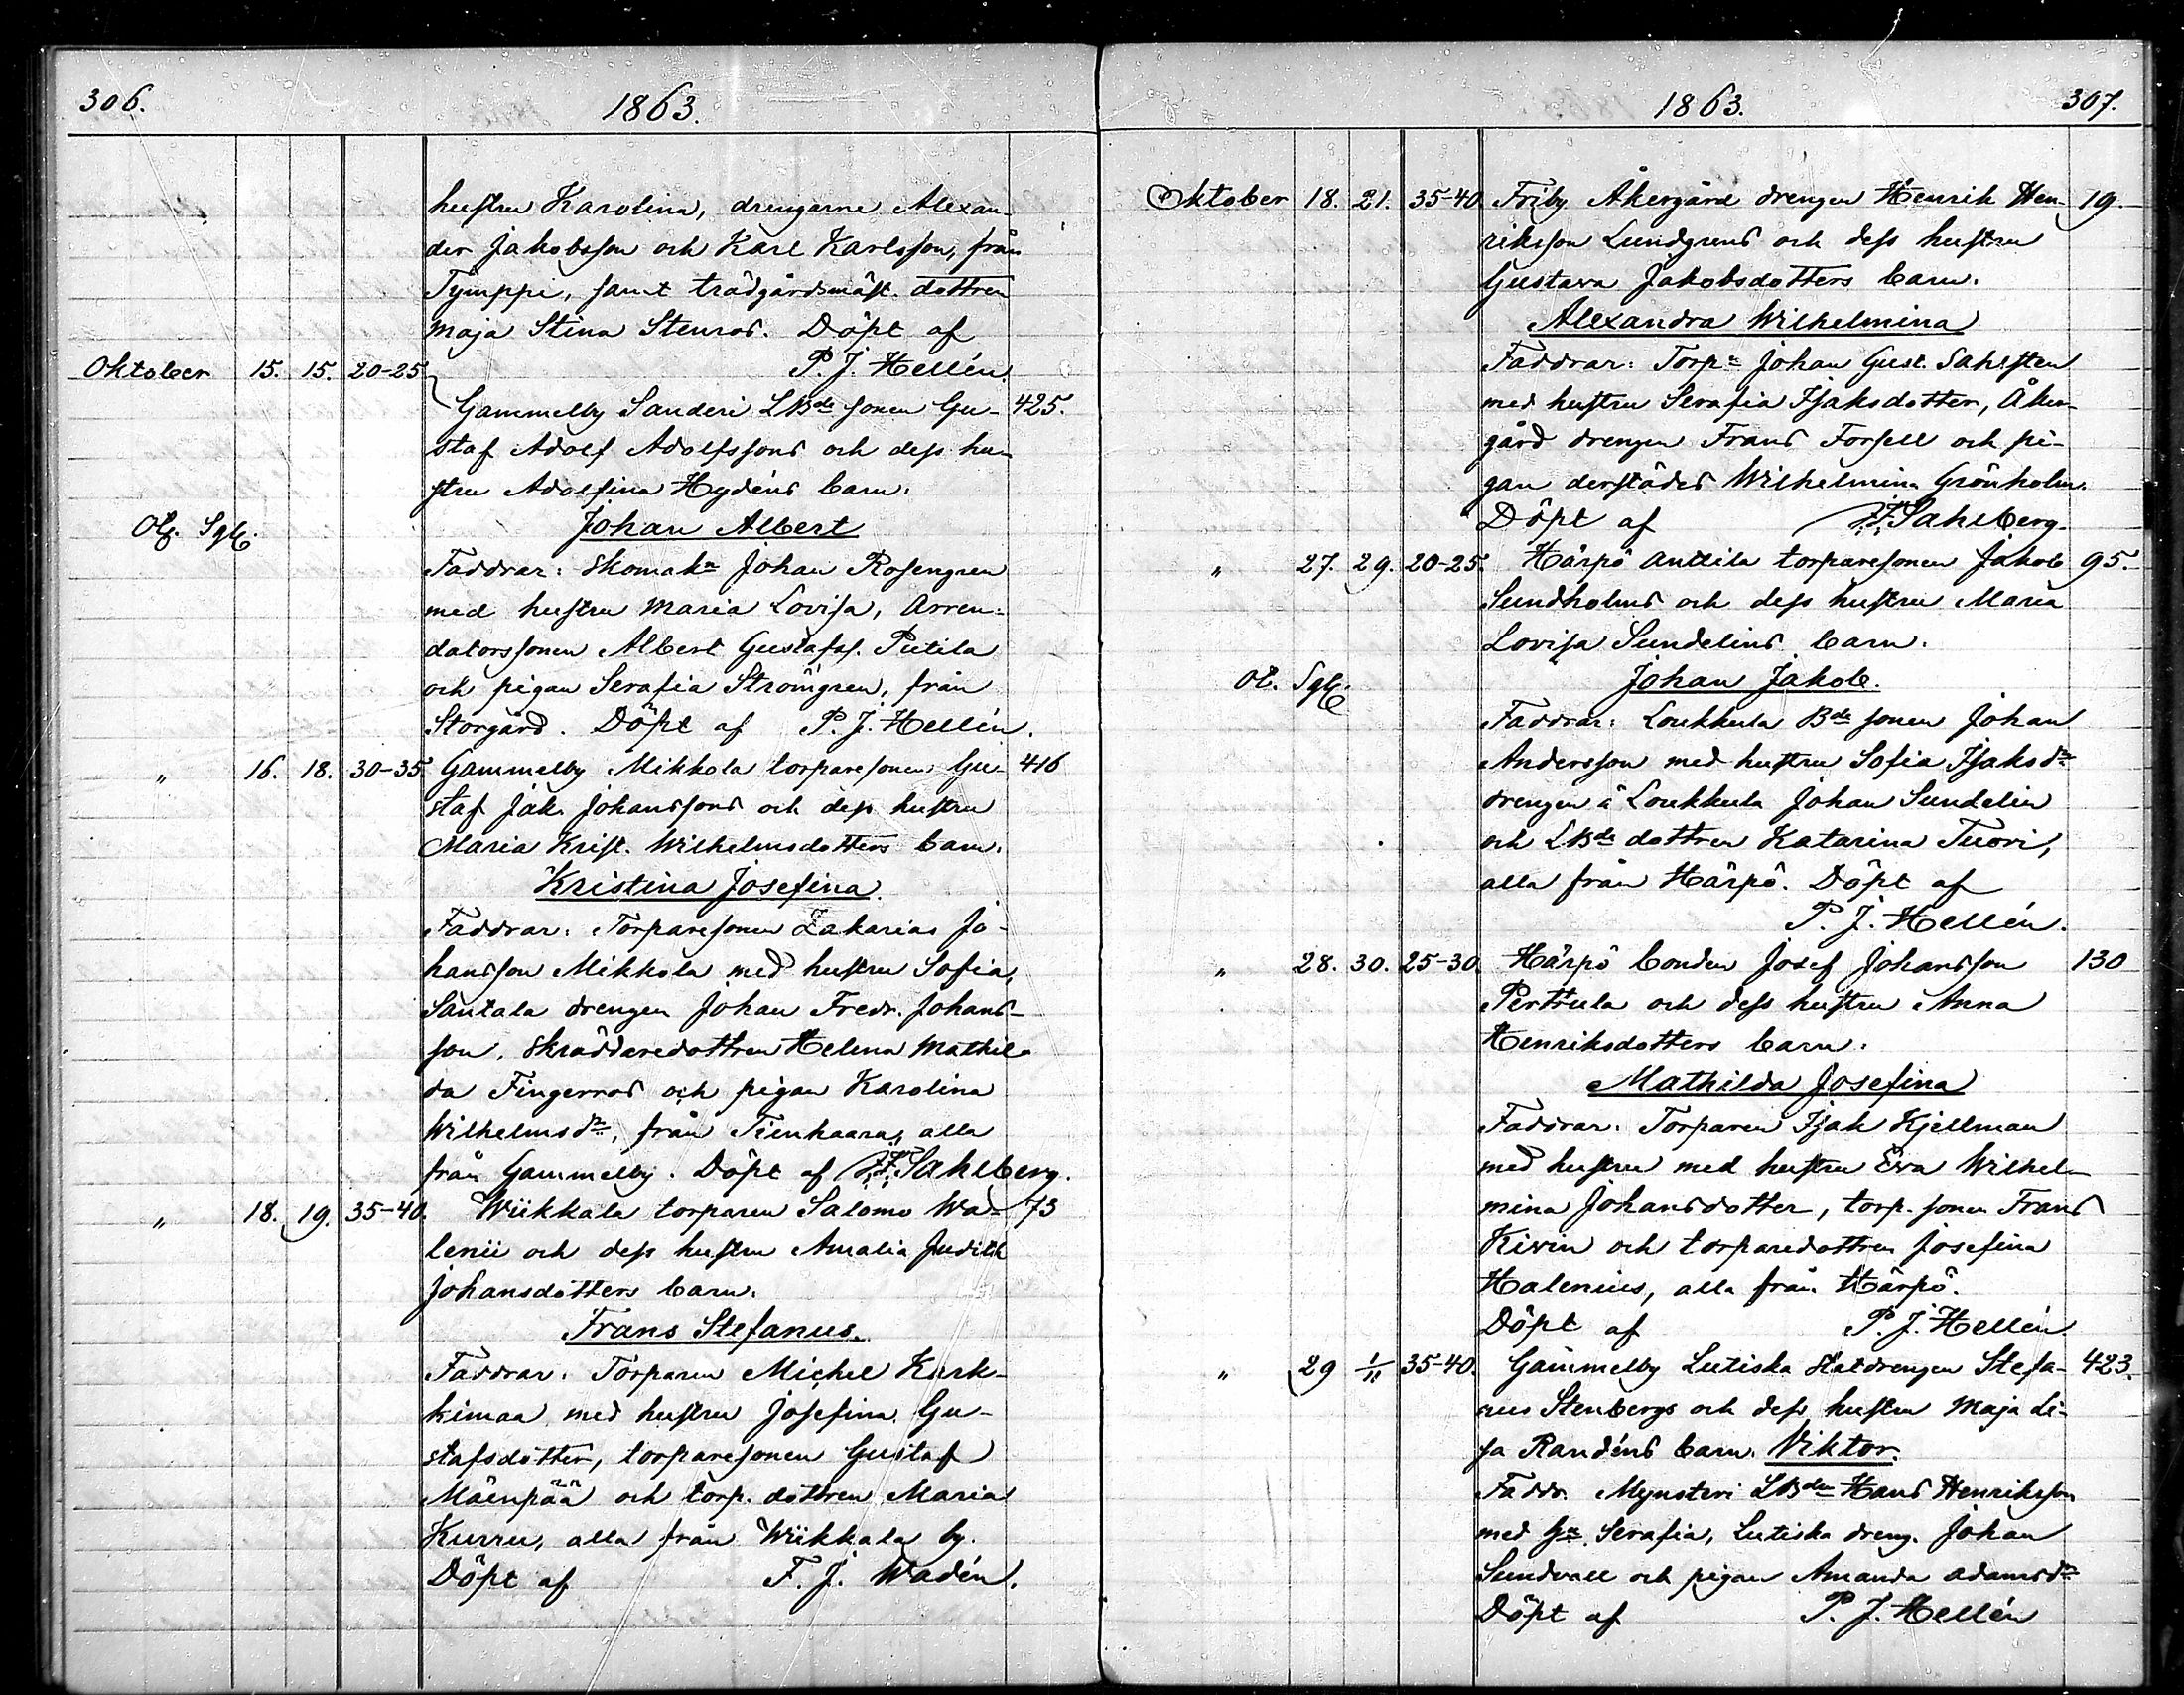 306.
1863.
hustru Karolina, drengarne Alexan-
der Jakobsson och Karl Karlsson, från
Tymppi, samt trädgårdsmäst. dottren
Maja Stina Stenros. Döpt af
P. J. Hellén.
Oktober 15. 15. 20-25 Gammelby Sanderi LBde sonen Gu- 425.
staf Adolf Adolfssons och dess hu-
stru Adolfina Hydéns barn.
Johan Albert
Faddrar: Skomakn Johan Rosengren
med hustru Maria Lovisa, Arren-
datorssonen Albert Gustafss. Putila
och pigan Serafia Strömgren, från
Storgård. Döpt af P. J. Hellén.
" 16. 18. 30-35. Gammelby Mikkola torparesonen Gu- 416
staf Jak. Johanssons och dess hustru
Maria Krist. Wilhelmsdotters barn.
Kristina Josefina.
Faddrar: Torparesonen Zakarias Jo-
hansson Mikkola med hustru Sofia,
Santala drengen Johan Fredr. Johans-
son, Skräddaredottren Helena Mathil-
da Fingerros och pigan Karolina
Wilhelmsdr, från Tienhaara, alla
från Gammelby. Döpt af Sahlberg.
" 18. 19. 35-40. Wiikkala torparen Salomo Wa- 73
lenii och dess hustru Amalia Judith
Johansdotters barn.
Frans Stefanus.
Faddrar: Torparen Michel Kark-
kimaa med hustru Josefina Gu-
stafsdotter, torparesonen Gustaf
Mäenpää och torp. dottren Maria
Kurru, alla från Wiikkala by.
Döpt af F. J. Wadén.
1863.
307.
Oktober 18. 21. 35-40 Friby Åkergård drengen Henrik Hen- 19.
riksson Lundgrens och dess hustru
Gustava Jakobsdotters barn.
Alexandra Wilhelmina
Faddrar: Torpn Johan Gust. Sahlsten
med hustru Serafia Isaksdotter, Åker-
gård drengen Frans Forsell och pi-
gan derstädes Wilhelmina Grönholm.
Döpt af Sahlberg.
" 27. 29. 20-25. Härpö Anttila torparesonen Jakob 95.
Sundholms och dess hustru Maria
Lovisa Sundelins barn.
Johan Jakob.
Faddrar: Loukkula Bde sonen Johan
Andersson med hustru Sofia Isaksdr
drengen å Loukkula Johan Sundelin
och LBde dottren Katarina Tuori,
alla från Härpö. Döpt af
P. J. Hellén.
" 28. 30. 25-30. Härpö bonden Josef Johansson 130
Perttula och dess hustru Anna
Henriksdotters barn.
Mathilda Josefina
Faddrar: Torparen Isak Kjellman
med hustru med hustru Eva Wilhel-
mina Johansdotter, torp. sonen Frans
Kivin och torparedottren Josefina
Halenius, alla från Härpö.
Döpt af P. J. Hellén.
" 29 1/11 35-40. Gammelby Lutiska statdrengen Stefa- 423.
nus Stenbergs och dess hustru Maja Li-
sa Randéns barn. Viktor.
Faddr. Mynsteri LBden Hans Henriksson
med Serafia, Lutiska dreng. Johan
Sundvall och pigan Amanda Adamsdr
Döpt af P. J. Hellén